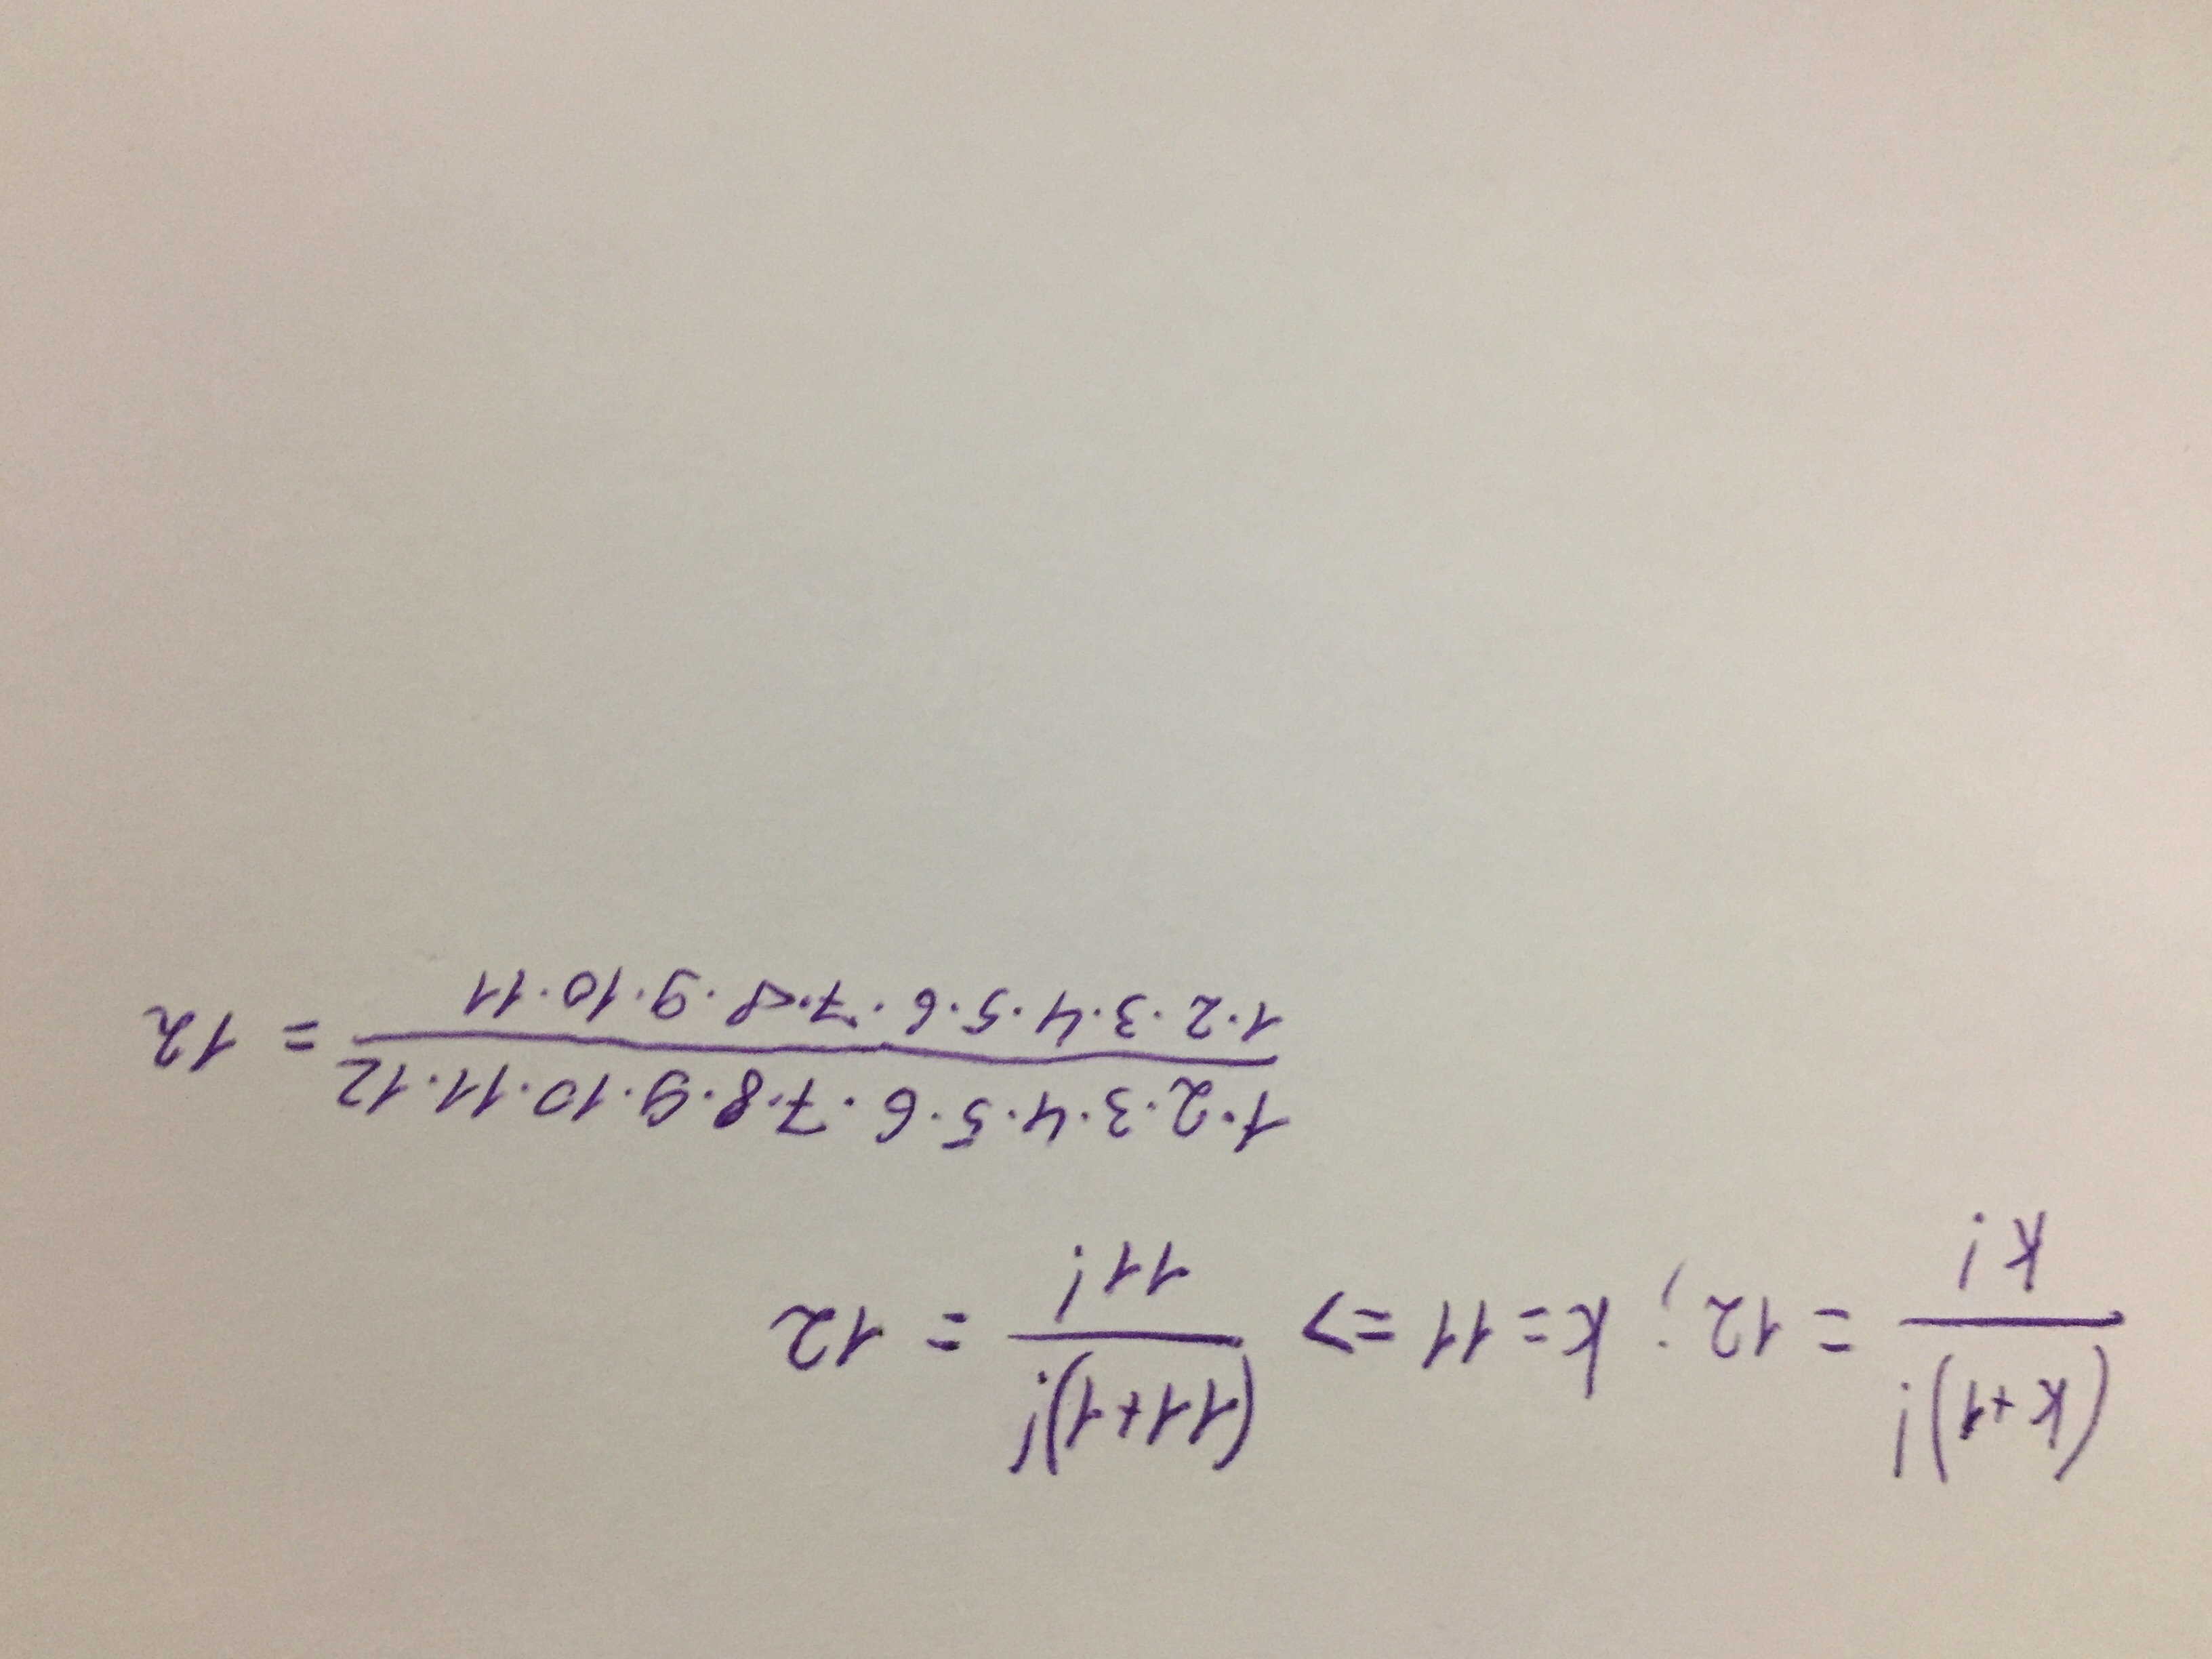 (k+1)!/k! = 12; k=11 => (11+1)!/11! = 12
1·2·3·4·5·6·7·8·9·10·11·12/1·2·3·4·5·6·7·8·9·10·11 = 12